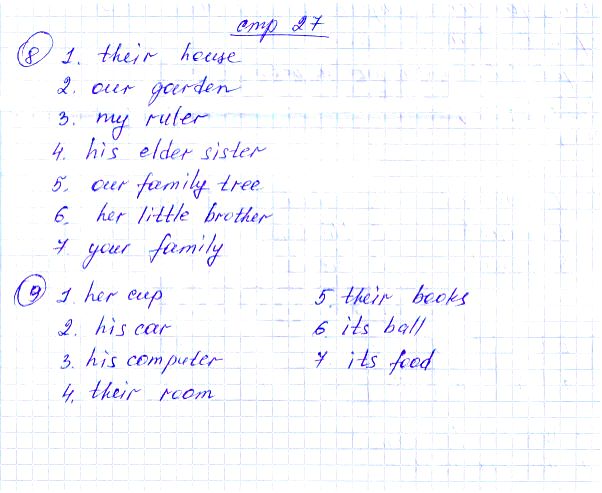 стр 27
8 1. their house
2. our garden
3. my ruler
4. his elder sister
5. our family tree
6. her little brother
7 your family
9 1. her cup
2. his car
3. his computer
4. their room
5. their books
6. its ball
7 its food